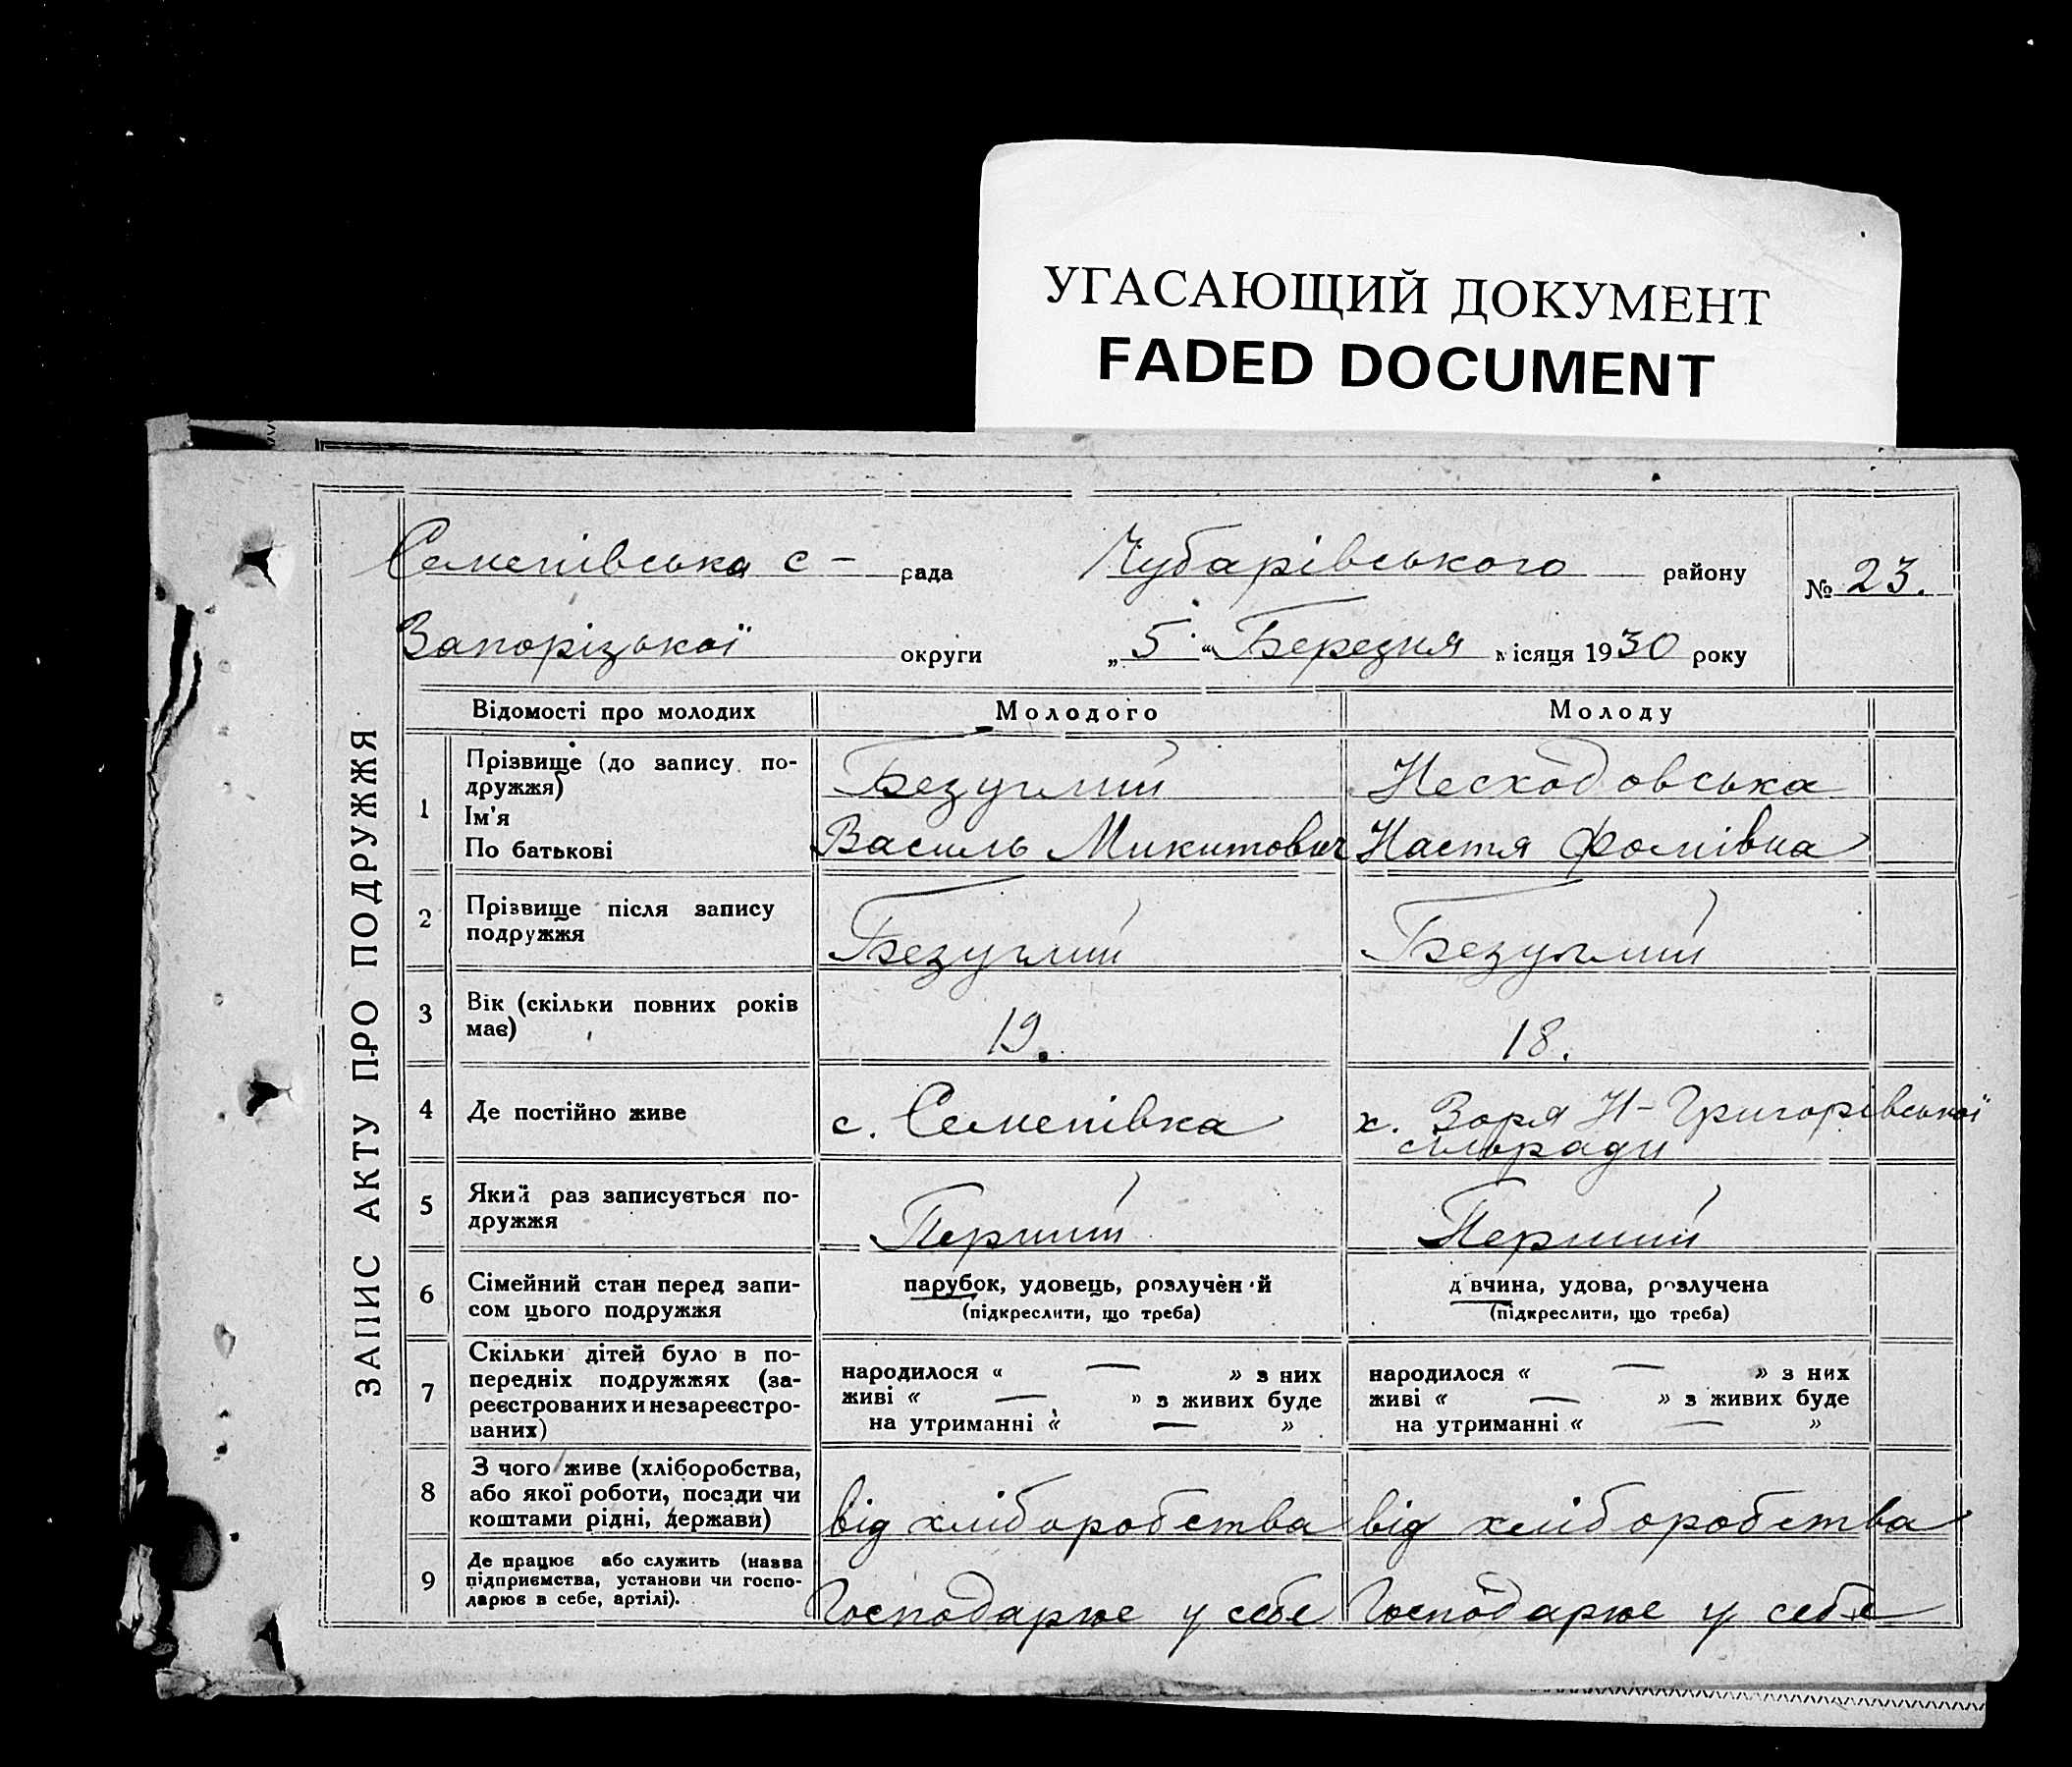 УГАСАЮЩИЙ ДОКУМЕНТ
FADED DOCUMENT
ЗАПИС АКТУ ПРО ПОДРУЖЖЯ
Семенівська с – рада Чубарівського району № 23.
Запорізької округи „5“ Березня місяця 1930 року
Відомості про молодих Молодого Молоду
1 Прізвище (до запису по-
дружжя) Безуглий Несходовська
Ім'я
По батькові Василь Микитович Настя Фомівна
2 Прізвище після запису
подружжя Безуглий Безуглий
3 Вік (скільки повних років
має) 19. 18.
4 Де постійно живе с. Семенівка х. Зоря Н-Григорівської
сільради
5 Який раз записується по-
дружжя Перший Перший
6 Сімейний стан перед запи-
сом цього подружжя
парубок, удовець, розлучений
(підкреслити, що треба)
дівчина, удова, розлучена
(підкреслити, що треба)
7 Скільки дітей було в по-
передніх подружжях (за-
реєстрованих и незареєстро-
ваних)
народилося « — » з них
живі « — » з живих буде
на утриманні « — »
народилося « — » з них
живі « — » з живих буде
на утриманні « — »
8 З чого живе (хліборобства,
або якої роботи, посади чи
коштами рідні, держави) від хліборобства від хліборобства
9 Де працює або служить (назва
підприємства, установи чи госпо-
дарює в себе, артілі). Господарює у себе Господарює у себе